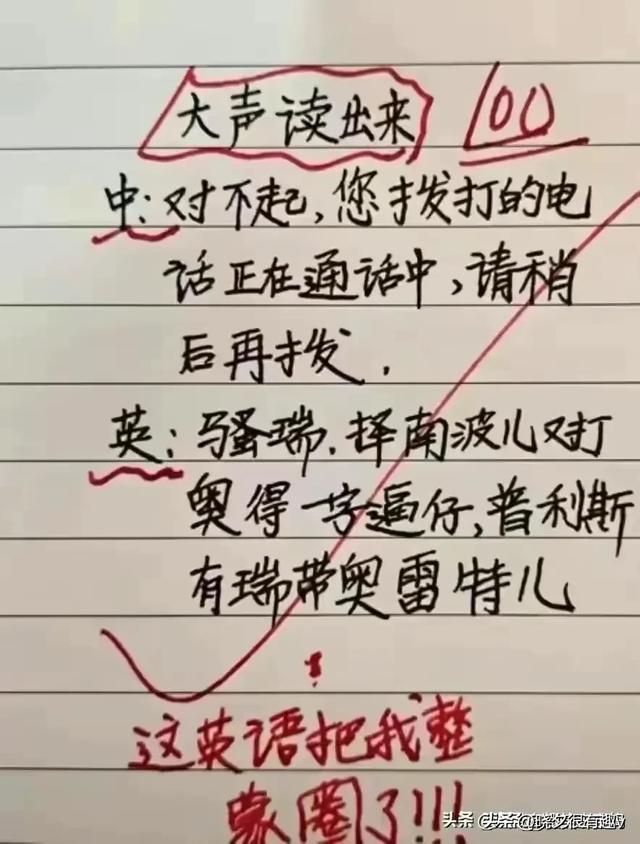 大声读出来
100
中:对不起,您拨打的电
话正在通话中,请稍
后再拨.
英:骚瑞.择南波儿对打
奥得一字逼仔,普利斯
有瑞带奥雷特儿
!
这英语把我整
蒙圈了!!!
头条